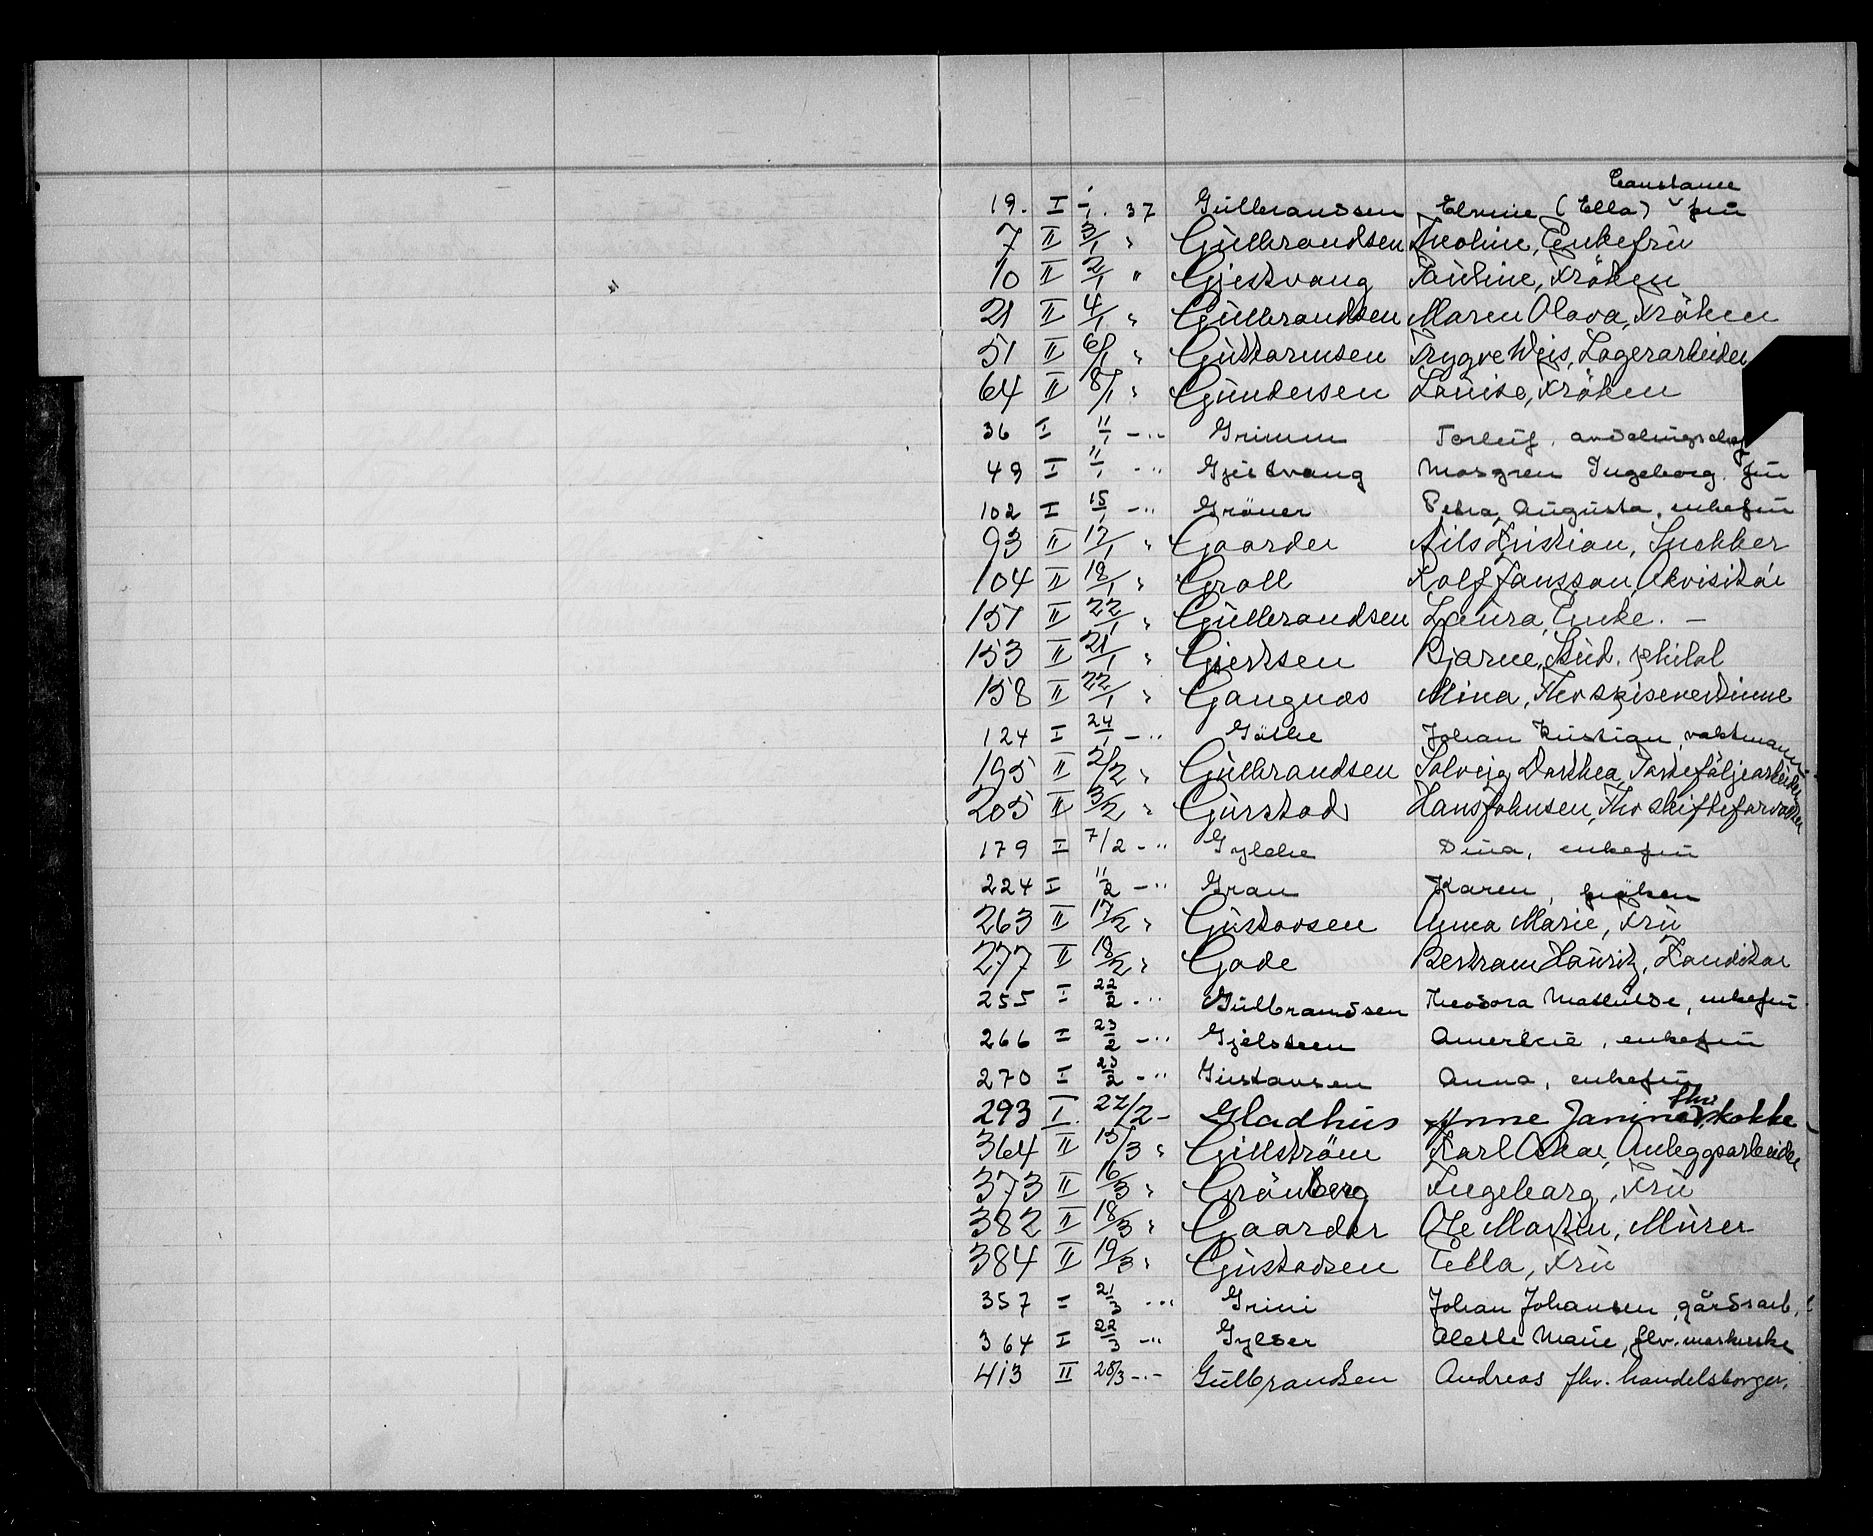 Constance
19. I -/1. 37 Gulbrandsen Elvine (Ella) fru
7 II 3/1 " Gulbrandsen Nicoline, Enkefru
10 II 2/1 " Gjestvang Pauline, Fröken
21 II 4/1 " Gulbrandsen Maren Olava, Fröken
51 II 6/1 " Guttormsen Trygve Weis, Lagerarbeider
64 II 8/1 " Gundersen Louise, Fröken
36 I 11/1 -"- Grimm Torleif, avdelingschef
49 I 11/1 -"- Gjestvang Mosgren Ingeborg. fru
102 I 15/1 -"- Gröner Petra Augusta, enkefru
93 II 17/1 " Gaarder Nils Kristian, Snekker
104 II 18/1 " Groll Rolf Jansson, Akvisitör
151 II 22/1 " Gulbrandsen Laura, Enke. -
153 II 21/1 " Gjertsen Bjarne, Stud. philol
158 II 22/1 " Gangnæs Mina, Fhv spisevertinne
124 I 24/1 -"- Göthe Johan Kristian, vaktmann
195 II 2/2 " Gulbrandsen Solveig Dorthea, Porteföljearbeider
205 II 3/2 " Gurstad Hans Johnsen, Fhv skifteforvalter
179 I 7/2 -"- Gylche Dina, enkefru
224 I 11/2 -"- Gran Karen, fröken
263 II 17/2 " Gustavsen Anna Marie, Fru
277 II 18/2 " Gade Bertram Hauritz, Konditor
255 I 22/2 -"- Gulbrandsen Theodora Mathilde, enkefru
266 I 23/2 -"- Gjelsteen enkefru
270 I 23/2 -"- Gustavsen Anna, enkefru
fhv
293 I. 27/2 - Gladhus Anne Janine, kokke
364 II 15/3 " Gillström Karl Oskar, Anleggsarbeider
373 II 16/3 " Grönberg Ingeborg, Fru
382 II 18/3 " Gaarder Ole Martin, Murer
384 II 19/3 " Gustavsen Ella, Fru
357 I 21/3 -"- Grini Johan Johansen, gårdsarb.
364 I 22/3 -"- Gylser Alette Marie, fhv.
413 II 28/3 -"- Gulbrandsen Andreas fhv. handelsborger.